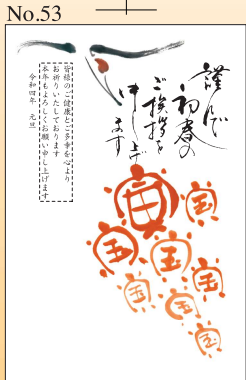 No.53
謹んで
初春の
ご挨拶を
申し上げ
ます
皆様のご健康とご多幸を心より
お祈りいたしております
本年もよろしくお願い申し上げます
令和四年 元旦
寅
宝
宝
宝
宝
宝
宝
宝